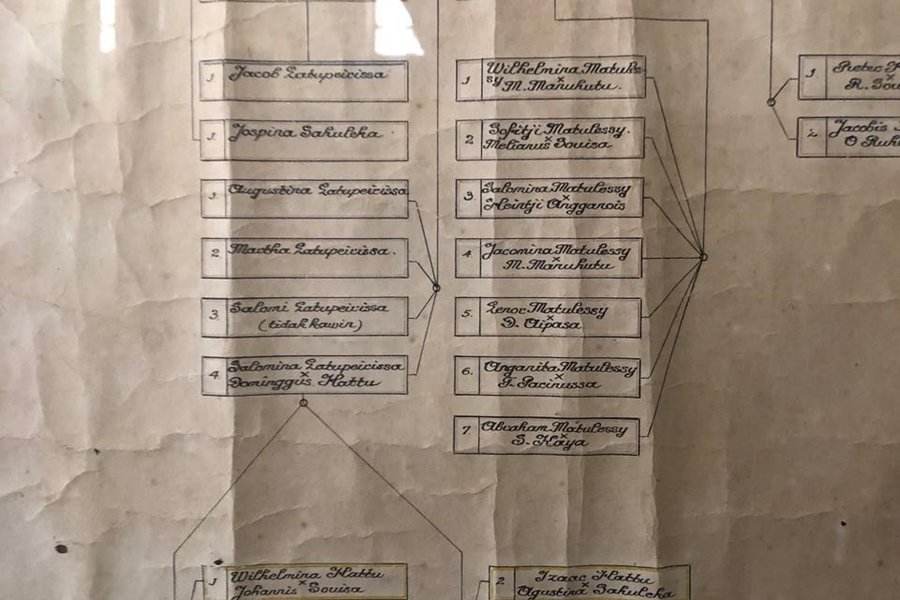 1 Jacob Latupeirissa
1 Jospina Sahuleka
1 Augustina Latupeirissa
2 Martha Latupeirissa.
3 Salomi Latupeirissa
(tidak kawin)
4 Salomina Latupeirissa
x
Dominggus Hattu
1 Wilhelmina Matules
sy x
M. Manuhutu.
2 Sofitji Matulessy.
x
Melianus Souisa
3 Salomina Matulessy
x
Heintji Angganois
4. Jacomina Matulessy
x
M. Manuhutu
5. Lenoc Matulessy
x
D. Aipasa
6. Anganita Matulessy
x
F. Pacinussa
7. Abraham Matulessy
x
S. Kaya
1 Pieter
x
R. Sou
2. Jacobis
O Ruh
1 Wilhelmina Hattu
x
Johannis Souisa
2 Izaac Hattu
x
Agustina Sahuleka